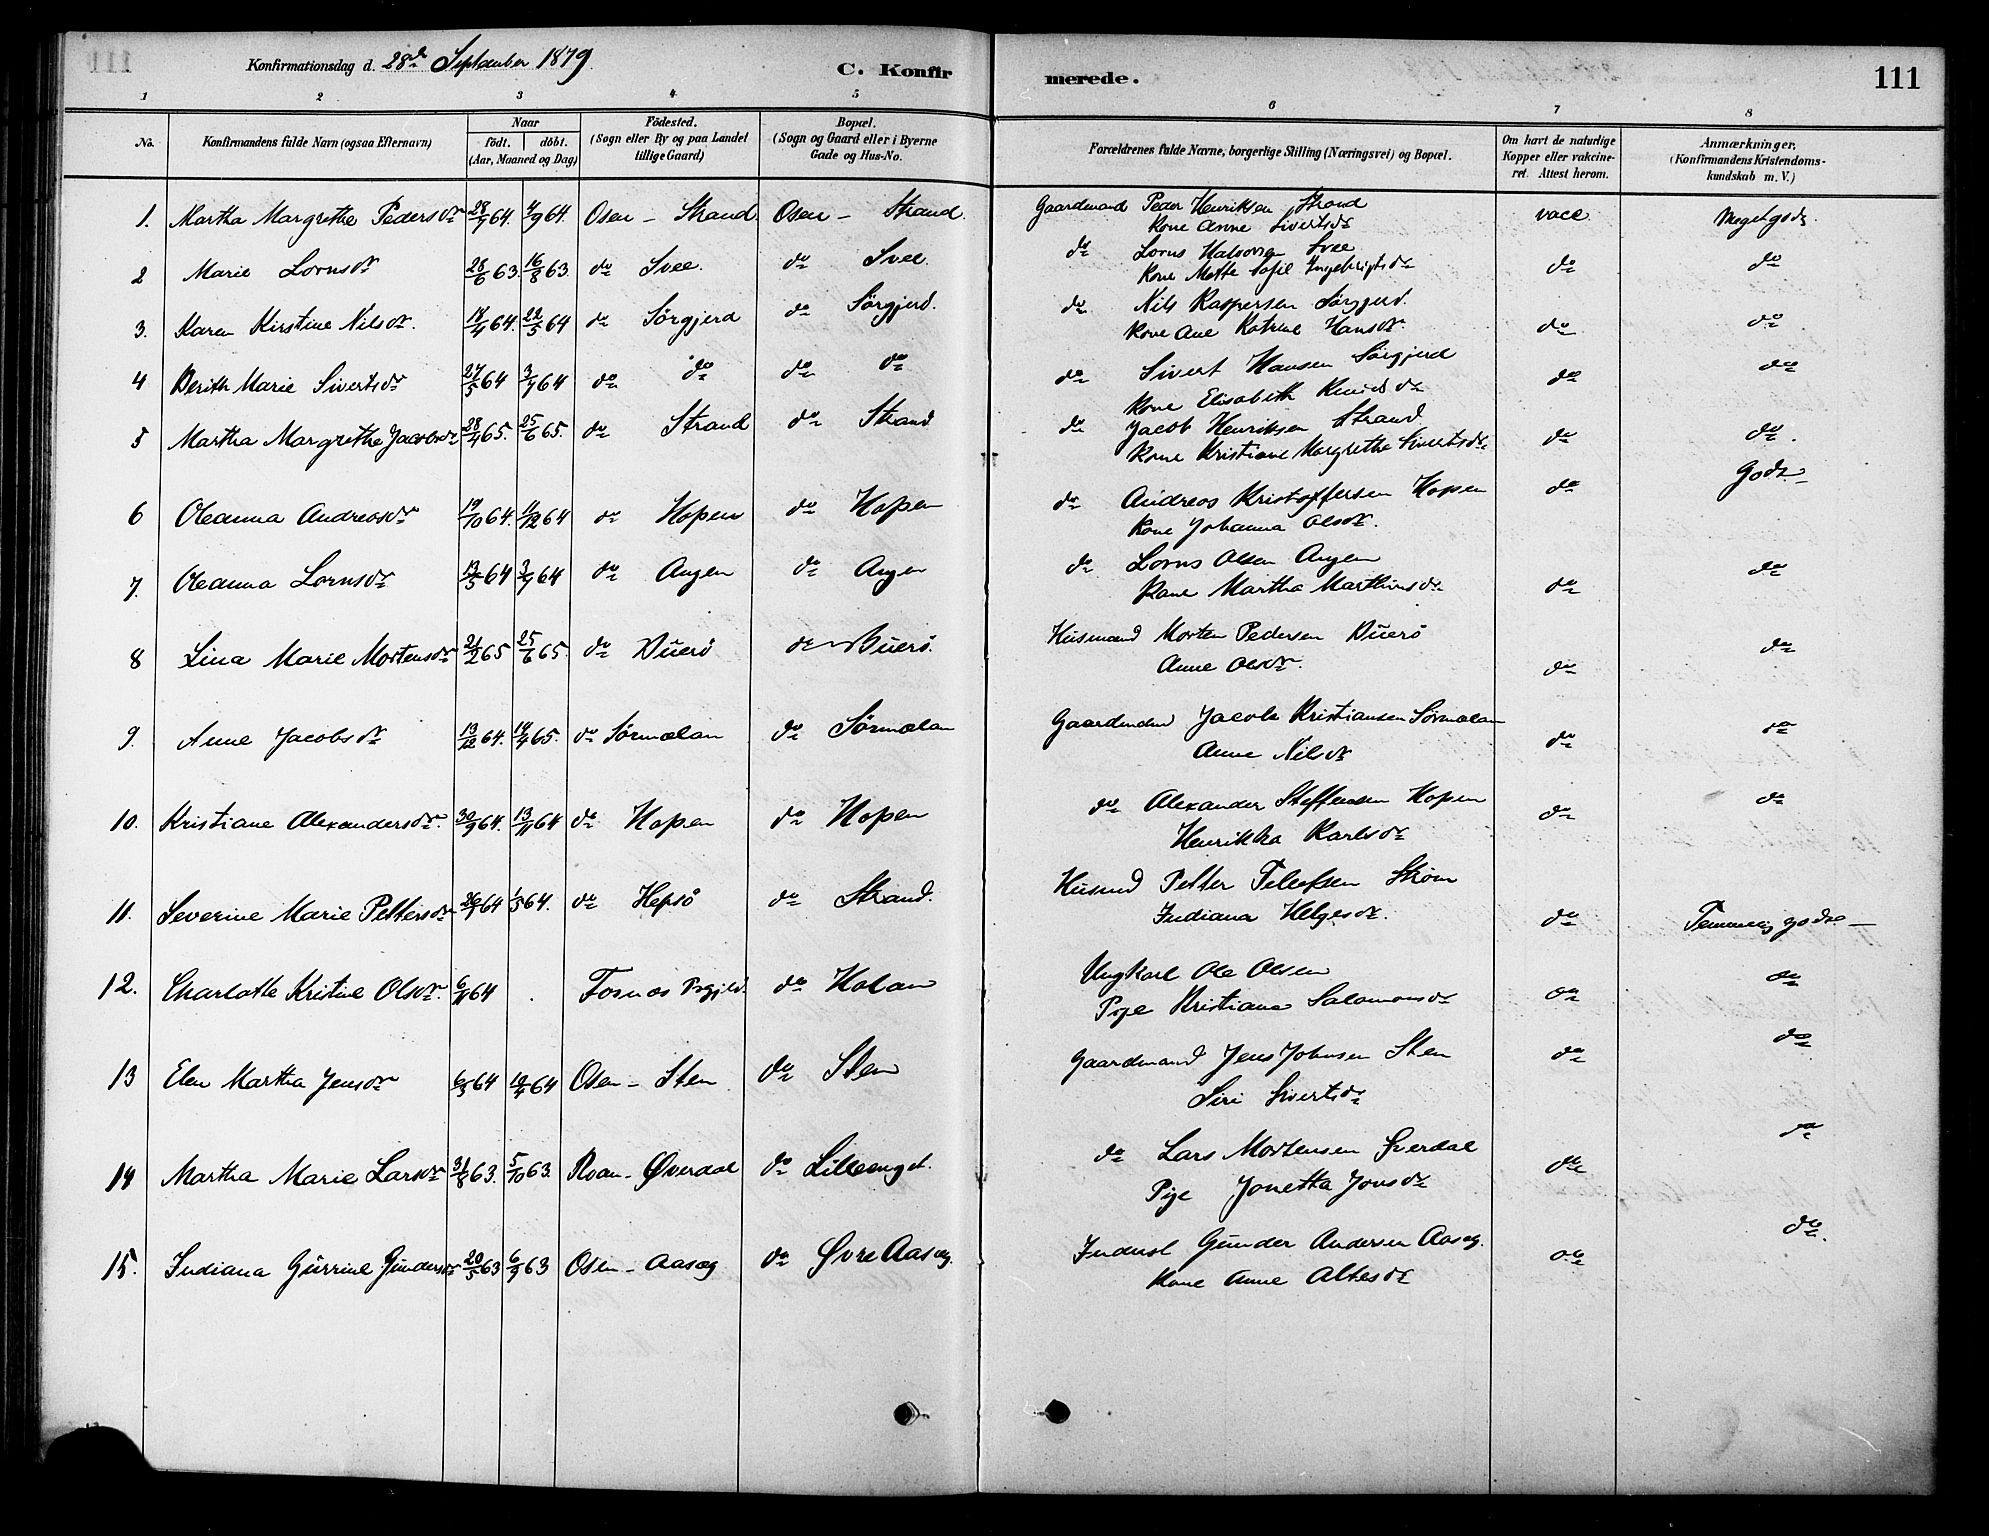 Konfirmationsdag d. 28de September 1879. C. Konfirmerede. 111
1 2 3 4 5 6 7 8
No. Konfirmandens fulde Navn (ogsaa Efternavn) Naar födt. döbt. (Aar, Maaned og Dag) Födested. (Sogn eller By og paa Landet tillige Gaard) Bopæl. (Sogn og Gaard eller i Byerne Gade og Hus-No. Forældrenes fulde Navne, borgerlige Stilling (Næringsvei) og Bopæl. Om havt de naturlige Kopper eller vakcineret. Attest herom. Anmærkninger. (Konfirmandens Kristendomskundskab m. V.)
1. Martha Margrethe Pedersdr 64. 4/9 64. Osen - Strand Osen - Strand Gaardmand Peder Henriksen Strand vacc Meget god
Kone Anne Sivertsdr
2 Marie Lornsdr 28/6 63. 16/8 63 do Svee. do Svee. do Lorns Halvorsen Svee do do
Kone Mette Sofie Ingebrigtsdr
3. Karen Kirstine Nilsdr. 18/4 64. 22/5 64 do Sörgjerd do Sörgjerd. do Nils Kaspersen Sörgjerd. do do
Kone Ane Katrine Hansdr.
4 Berith Marie Sivertsdr 27/5 64 3/7 64 do do do do do Sivert Hansen Sörgjerd do do
Kone Elisabeth Knudsdr
5 Martha Margrethe Jacobsdr 28/4 65. 25/6 65. do Strand do Strand do Jacob Henriksen Strand do do.
Kone Kristiane Margrethe Sivertsdr
6 Oleanna Andreasdr 19/10 64. 11/12 64 do Hopen do Hopen do Andreas Kristoffersen Hopen do Godt
Kone Johanna Olsdr.
7. Oleanna Lornsdr 13/5 64 3/7 64 do Angen do Angen do Lorns Olsen Angen do do
Kone Martha Marthinsdr
8 Lina Marie Mortensdr 21/2 65 25/6 65. do Buerö do Buerö. Husmand Morten Pedersen Buerö do do
Anne Olsdr.
9. Anne Jacobsdr 13/12 64. 14/4 65. do Sörmælan do Sörmælan Gaardmand Jacob Kristiansen Sörmælan do do
Anne Nilsdr
10. Kristiane Alexandersdr. 30/9 64. 13/11 64 do Hopen do Hopen do Alexander Steffensen Hopen do do
Henrikka Karlsdr
11. Severine Marie Pettersdr 64 1/5 64. do Hepsö do Strand. Husmd Petter Strøm do Temmelig godt
Indiana Helgesdr.
12. Charlotte Kristine Olsdr. 64 Fosnes Prgjld. do Holan Ungkarl Ole Olsen do do
Pige Kristiane Salomonsdr
13 Elen Martha Jensdr 6/3 64 10/4 64 Osen - Sten do Sten Gaardmand Jens Johnsen Sten do do
Siri Sivertsdr
14 Martha Marie Larsdr 31/8 63. 5/10 63. Roan - Øverdal do Lilleenget. do Lars Mortensen Øverdal do do
Pige Jonetta Jonsdr
15. Indiana Gurrine Gundersdr 20/5 63 6/9 63 Osen - Aasæg do Øvre Aasæg Inderst Gunder Andersen Aasæg. do do.
Kone Anne Altesdr